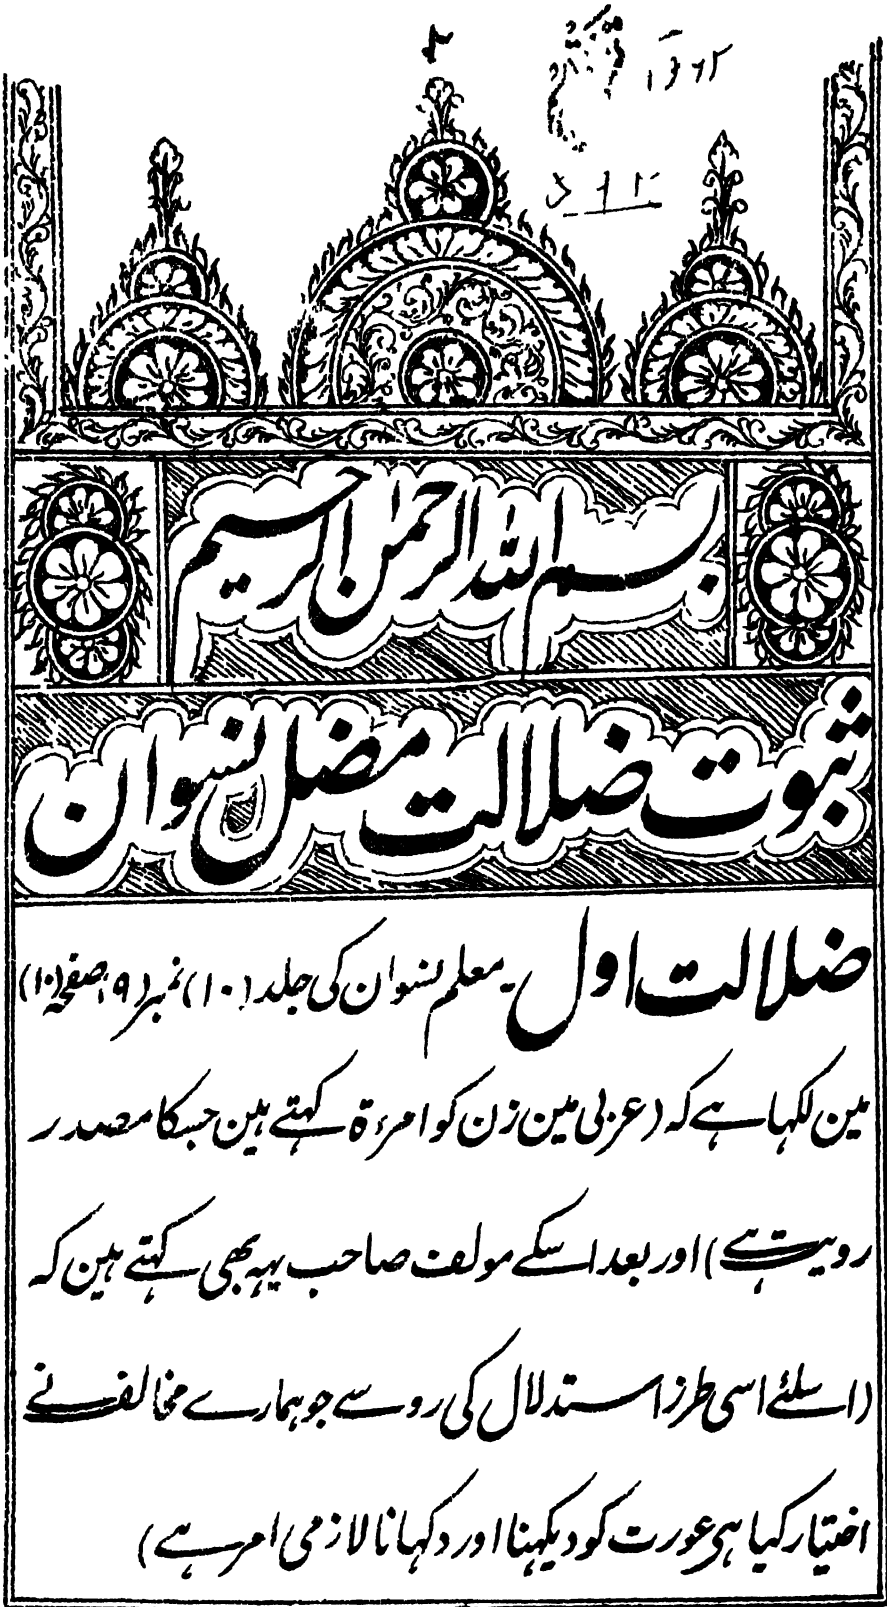 بسم اللہ الرحمٰن الرحیم
ثبوت ضلالت مضل نسوان
ضلالت اول۔ معلم نسوان کی جلد (۱۰) نمبر (۹) صفحہ (۱۰)
مین لکہا ہے کہ (عربی مین زن کو امرءۃ کہتے ہین جسکا مصدر
رویت ہے) اور بعد اسکے مولف صاحب یہہ بھی کہتے ہین کہ
(اسلئے اسی طرز استدلال کی روسے جو ہمارے مخالف نے
اختیار کیا ہی عورت کو دیکہنا اور دکہانا لازمی امر ہے)